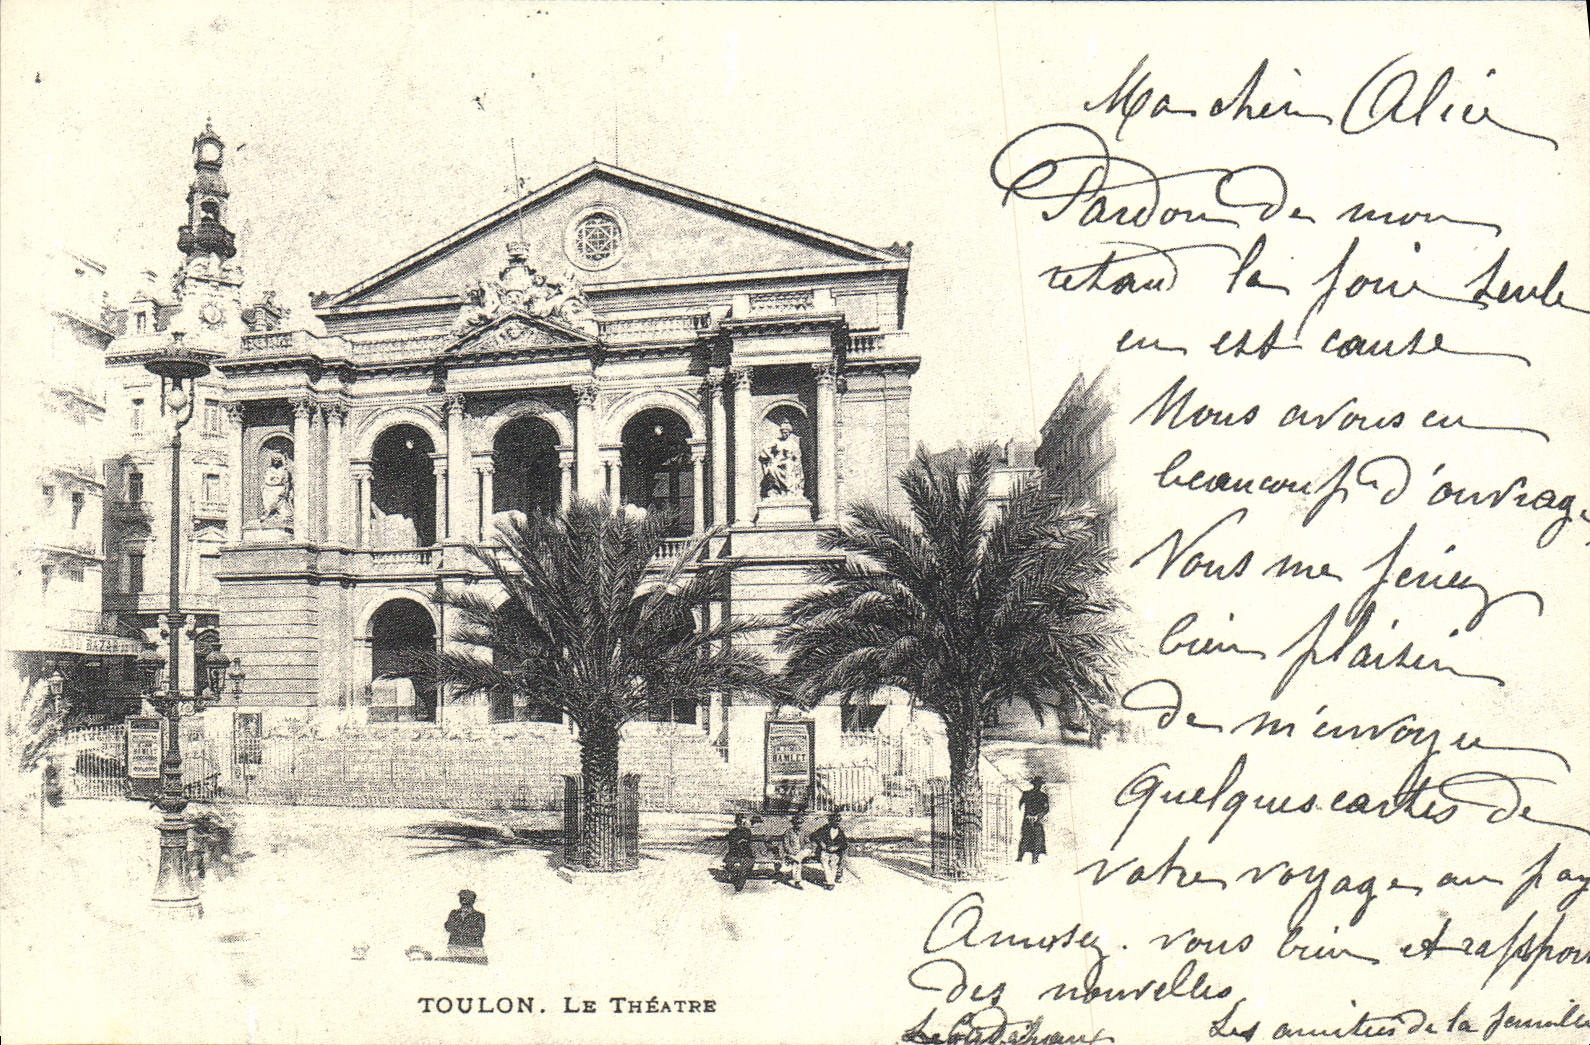 Ma chère Alice
Pardon de mon
retard la foire seule
en est cause
Nous avons eu
beaucoup d'ouvrage
Vous me feriez
bien plaisir
de m'envoyer
quelques cartes de
votre voyage au pay
Amusez-vous bien et rappor
des nouvelles
Les amitiés de la famille
BAZAR
HAMLET
TOULON. LE THÉATRE